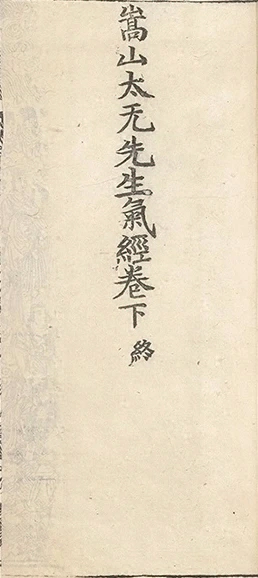 嵩山太无先生氣經卷下 終